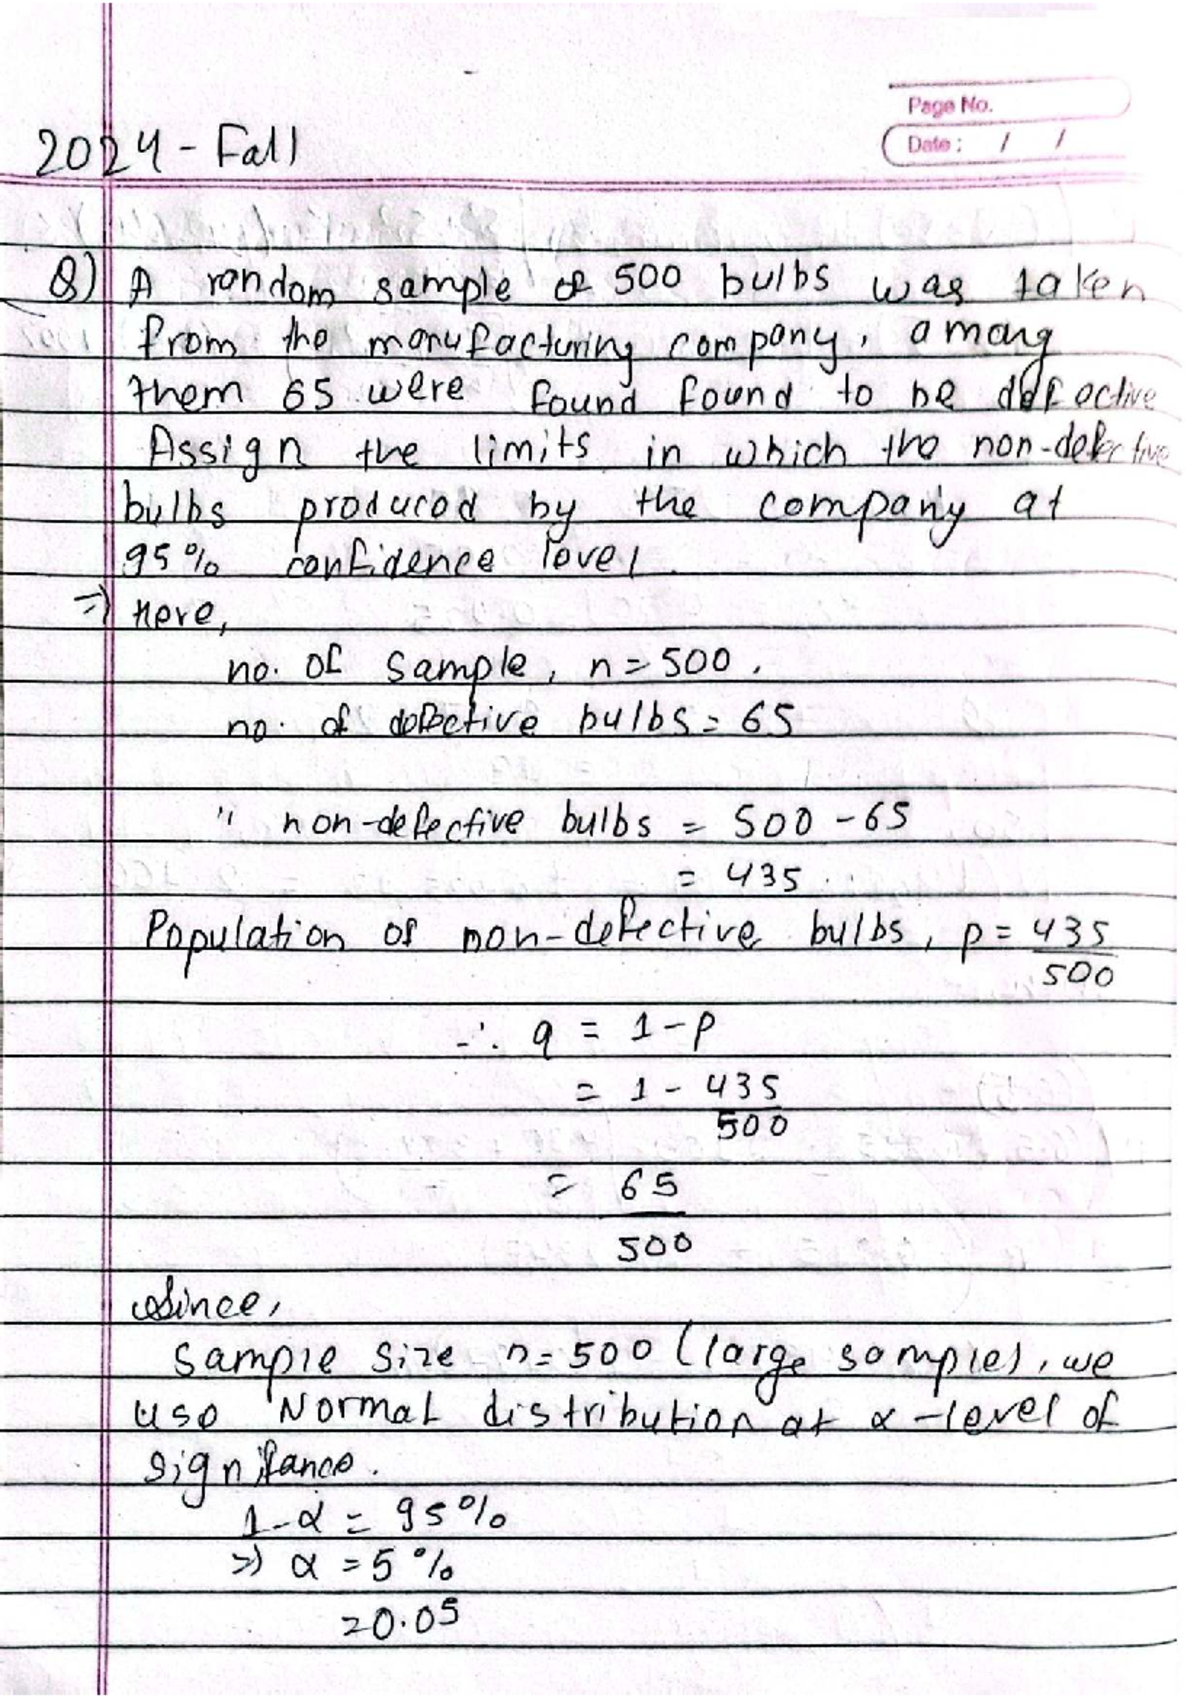 Page No.
Date: / /
2024 - Fall
Q) A random sample of 500 bulbs was taken
from the manufacturing company, among
them 65 were found found to be defective
Assign the limits in which the non-defective
bulbs produced by the company at
95% confidence level
=) Here,
no. of sample, n = 500.
no. of defective bulbs = 65
" non-defective bulbs = 500 - 65
= 435
Population of non-defective bulbs, p = 435
500
∴ q = 1 - p
= 1 - 435
500
= 65
500
Since,
sample size n = 500 (large sample), we
use Normal distribution at α-level of
signifance.
1-α = 95%
=) α = 5%
= 0.05